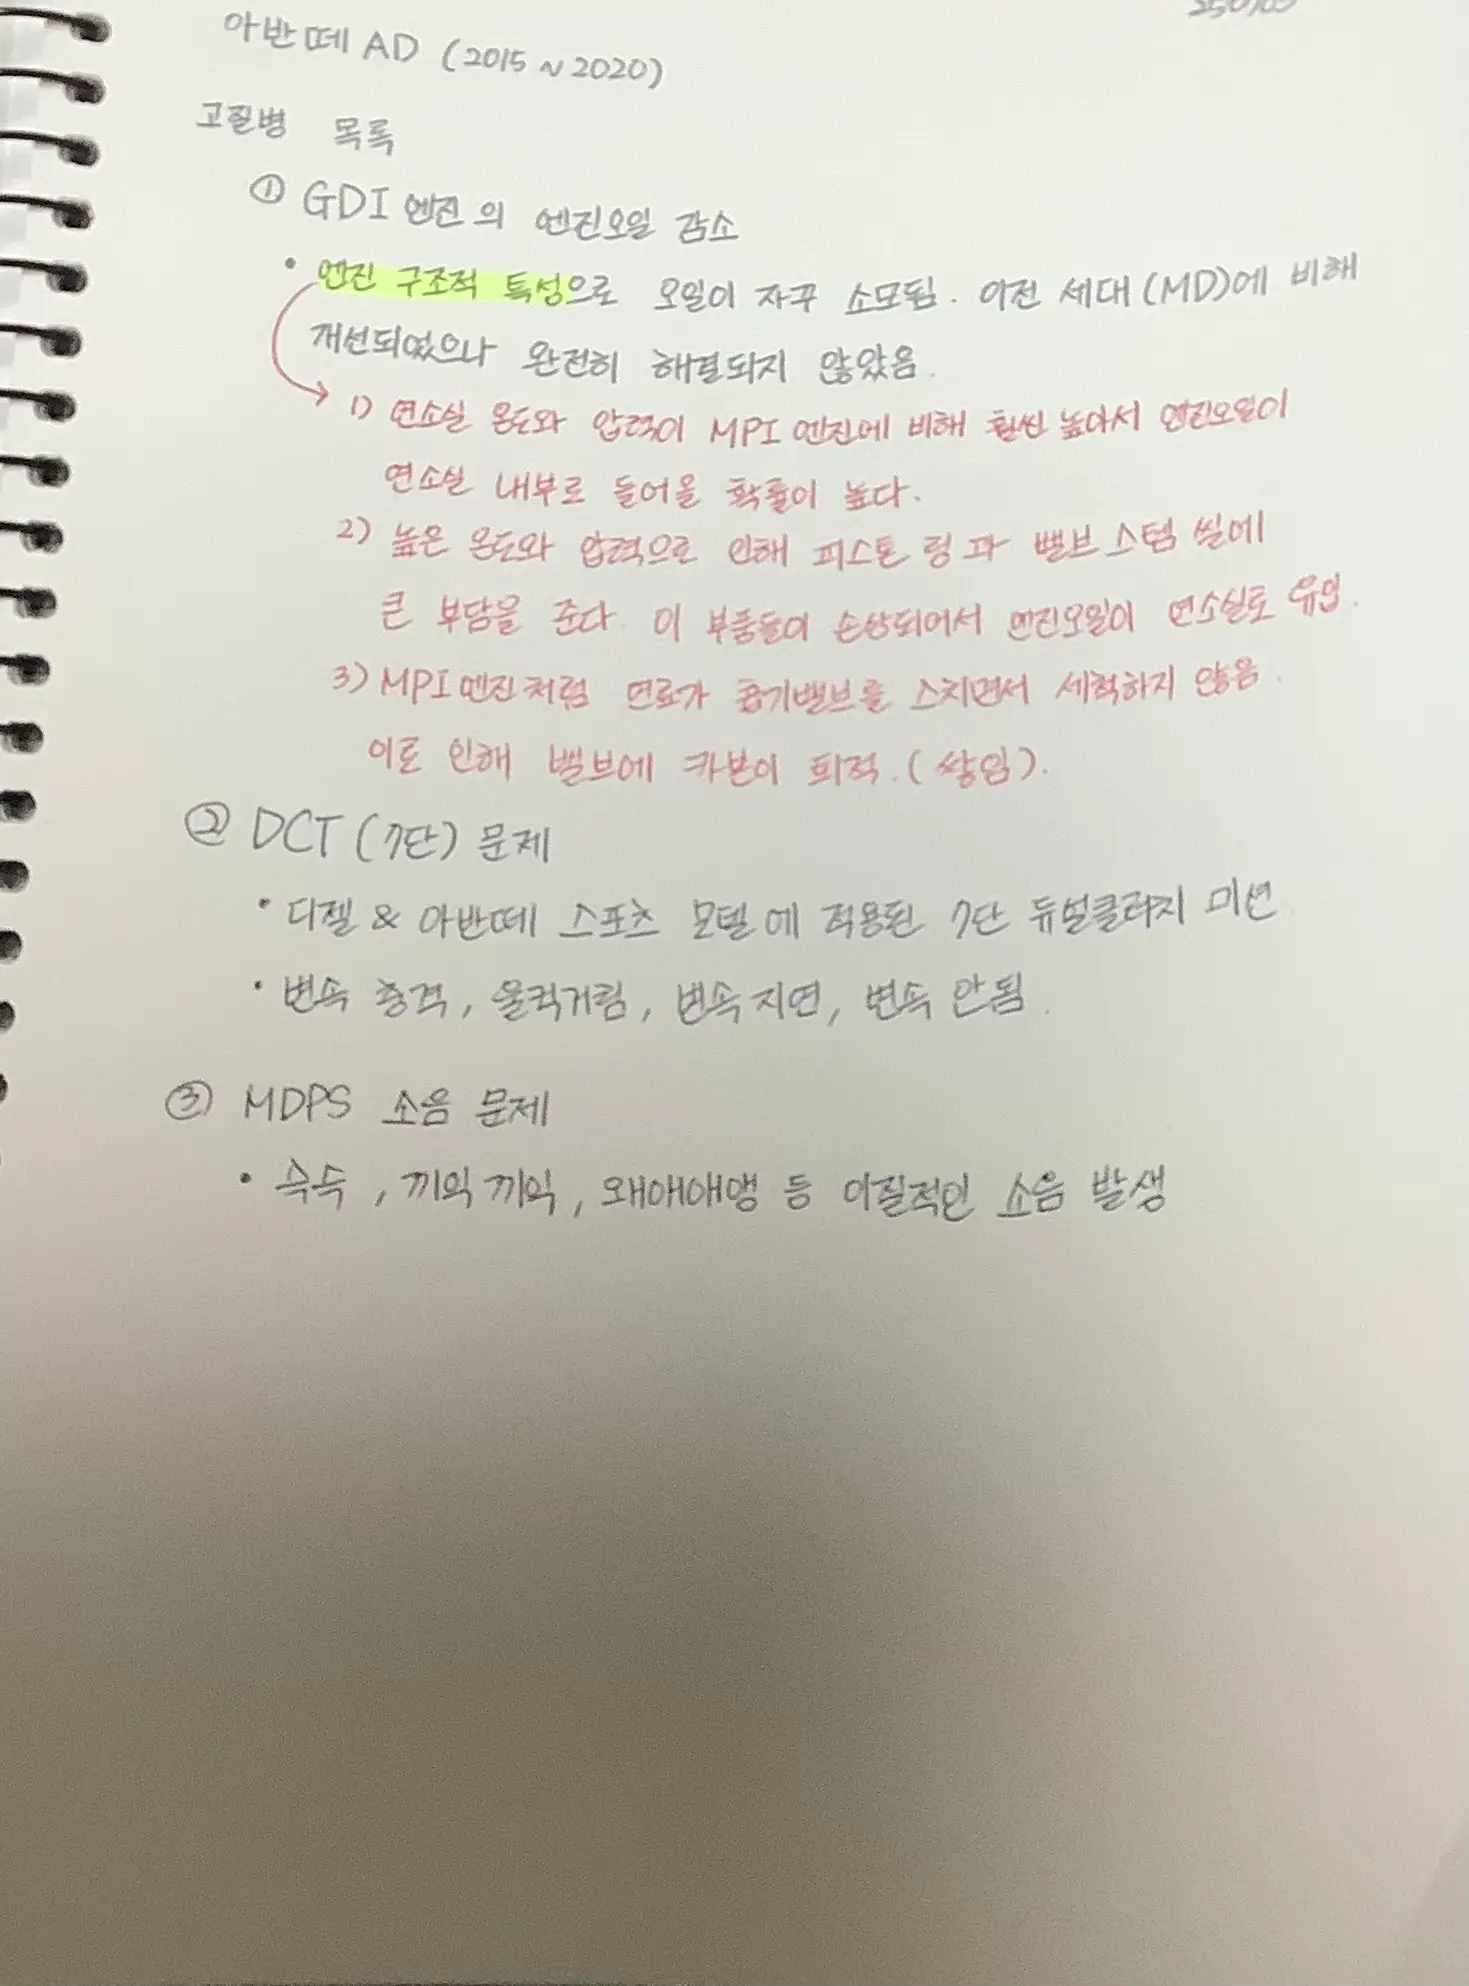 아반떼 AD (2015 ~ 2020)
고질병 목록
① GDI 엔진의 엔진오일 감소
• 엔진 구조적 특성으로 오일이 자꾸 소모됨. 이전 세대(MD)에 비해
개선되었으나 완전히 해결되지 않았음.
1) 연소실 온도와 압력이 MPI 엔진에 비해 훨씬 높아서 엔진오일이
연소실 내부로 들어올 확률이 높다.
2) 높은 온도와 압력으로 인해 피스톤 링과 밸브 스템 씰에
큰 부담을 준다. 이 부품들이 손상되어서 엔진오일이 연소실로 유입.
3) MPI 엔진처럼 연료가 흡기밸브를 스치면서 세척하지 않음.
이로 인해 밸브에 카본이 퇴적.(쌓임).
② DCT (7단) 문제
• 디젤 & 아반떼 스포츠 모델에 적용된 7단 듀얼클러치 미션.
• 변속 충격, 울컥거림, 변속지연, 변속 안됨.
③ MDPS 소음 문제
• 슥둑, 끼익끼익, 왜애애앵 등 이질적인 소음 발생